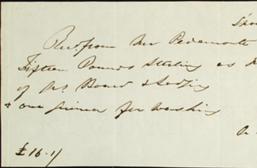 Recd from Mr
Fifteen Pounds Sterling as
of his Board & Lodging
& one guinea for washing
£16.1/